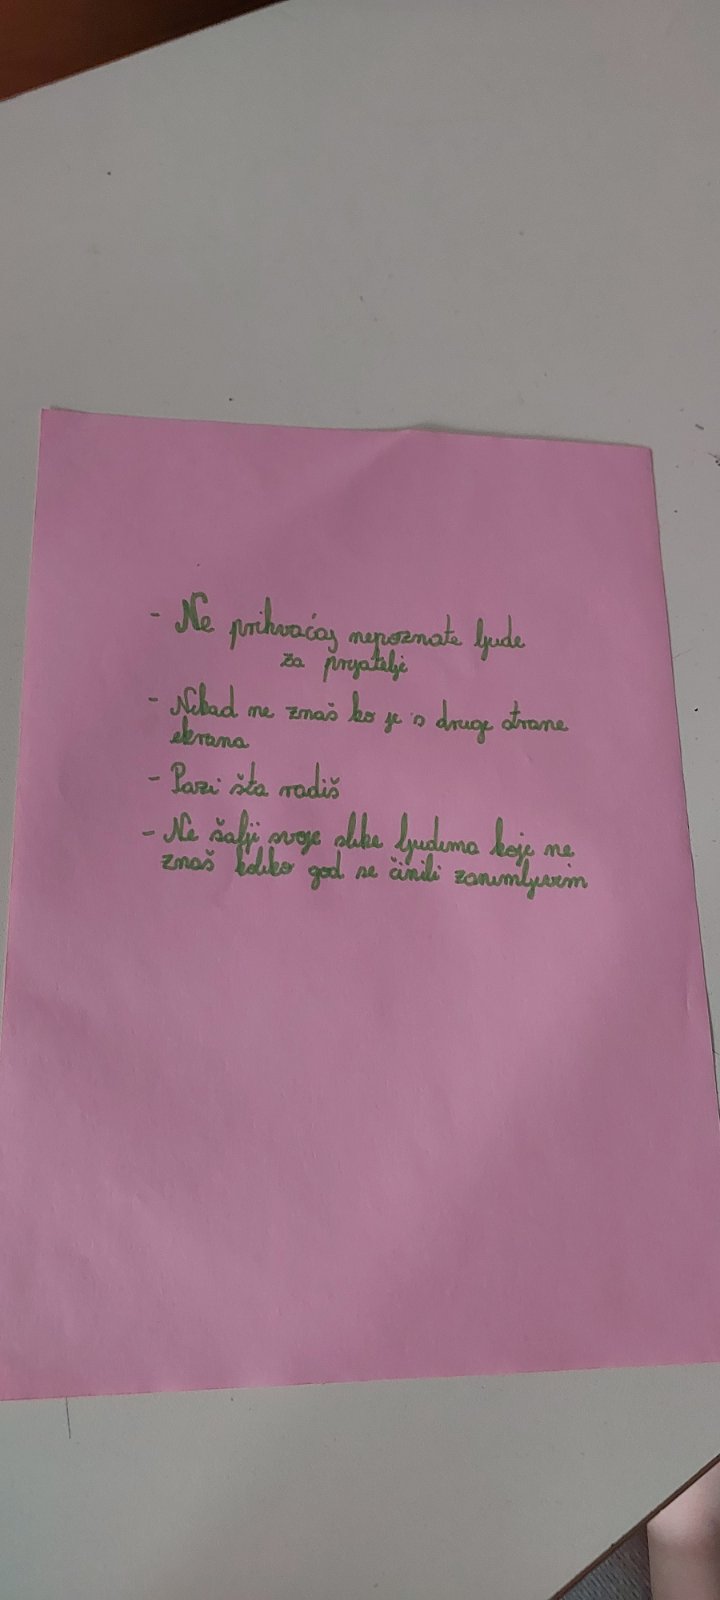 - Ne prihvaćaj nepoznate ljude
za prijatelje
- Nikad ne znaš ko je s druge strane
ekrana
- Pazi šta radiš
- Ne šalji svoje slike ljudima koje ne
znaš koliko god se činili zanimljivim